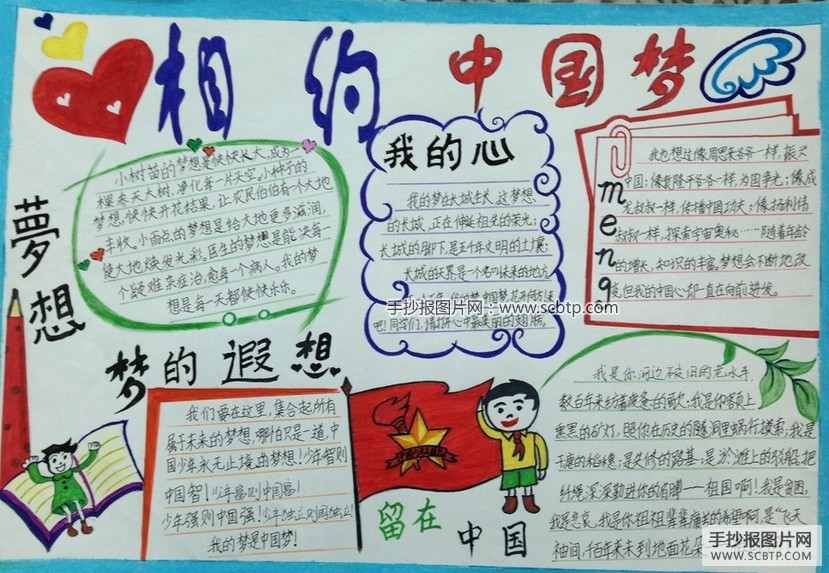 相约 中国梦
梦想
夢想
小树苗的梦想是快快长大,成为一
棵参天大树,净化每一片天空。小种子的
梦想,快快开花结果,让农民伯伯有个大地
丰收。小雨点的梦想是给大地更多滋润,
使大地焕发光彩。医生的梦想是能决每一
个疑难杂症治,愈每个病人。我的梦
想是每一天都快快乐乐。
我的心
我的梦在长城生长,这梦想
的长城,正在伸延祖先的荣光;
长城的脚下,是五千年文明的土壤;
长城的天界,是一个名叫未来的地方
吧!同学们,请打开心中最美丽的翅膀。
meng
我也想过像周恩来爷爷一样,振兴
中国;像袁隆平爷爷一样,为国争光;像成
龙叔叔一样,传播中国功夫;像杨利伟
叔叔一样,探索宇宙奥秘……随着年龄
的增长,知识的丰富,梦想会不断地改
变,但我的中国心却一直在向前进发。
手抄报图片网——
www.scbtp.com
梦的遐想
我们要在这里,集合起所有
属于未来的梦想,哪怕只是一道,中
国少年永无止境的梦想!少年智则
中国智!少年富则中国富!
少年强则中国强!少年独立则国独立!
我的梦是中国梦!
留在中国
我是你河边上破旧的老水车,
数百年来纺着疲惫的歌;我是你额上
熏黑的矿灯,照你在历史的隧洞里蜗行摸索;我是
干瘪的稻穗;是失修的路基;是淤滩上的驳船,把
纤绳深深勒进你的肩膊——祖国啊!我是贫困,
我是悲哀。我是你祖祖辈辈痛苦的希望啊,是“飞天
袖间,千百年来未到地面花朵
手抄报图片网
WWW.SCBTP.COM